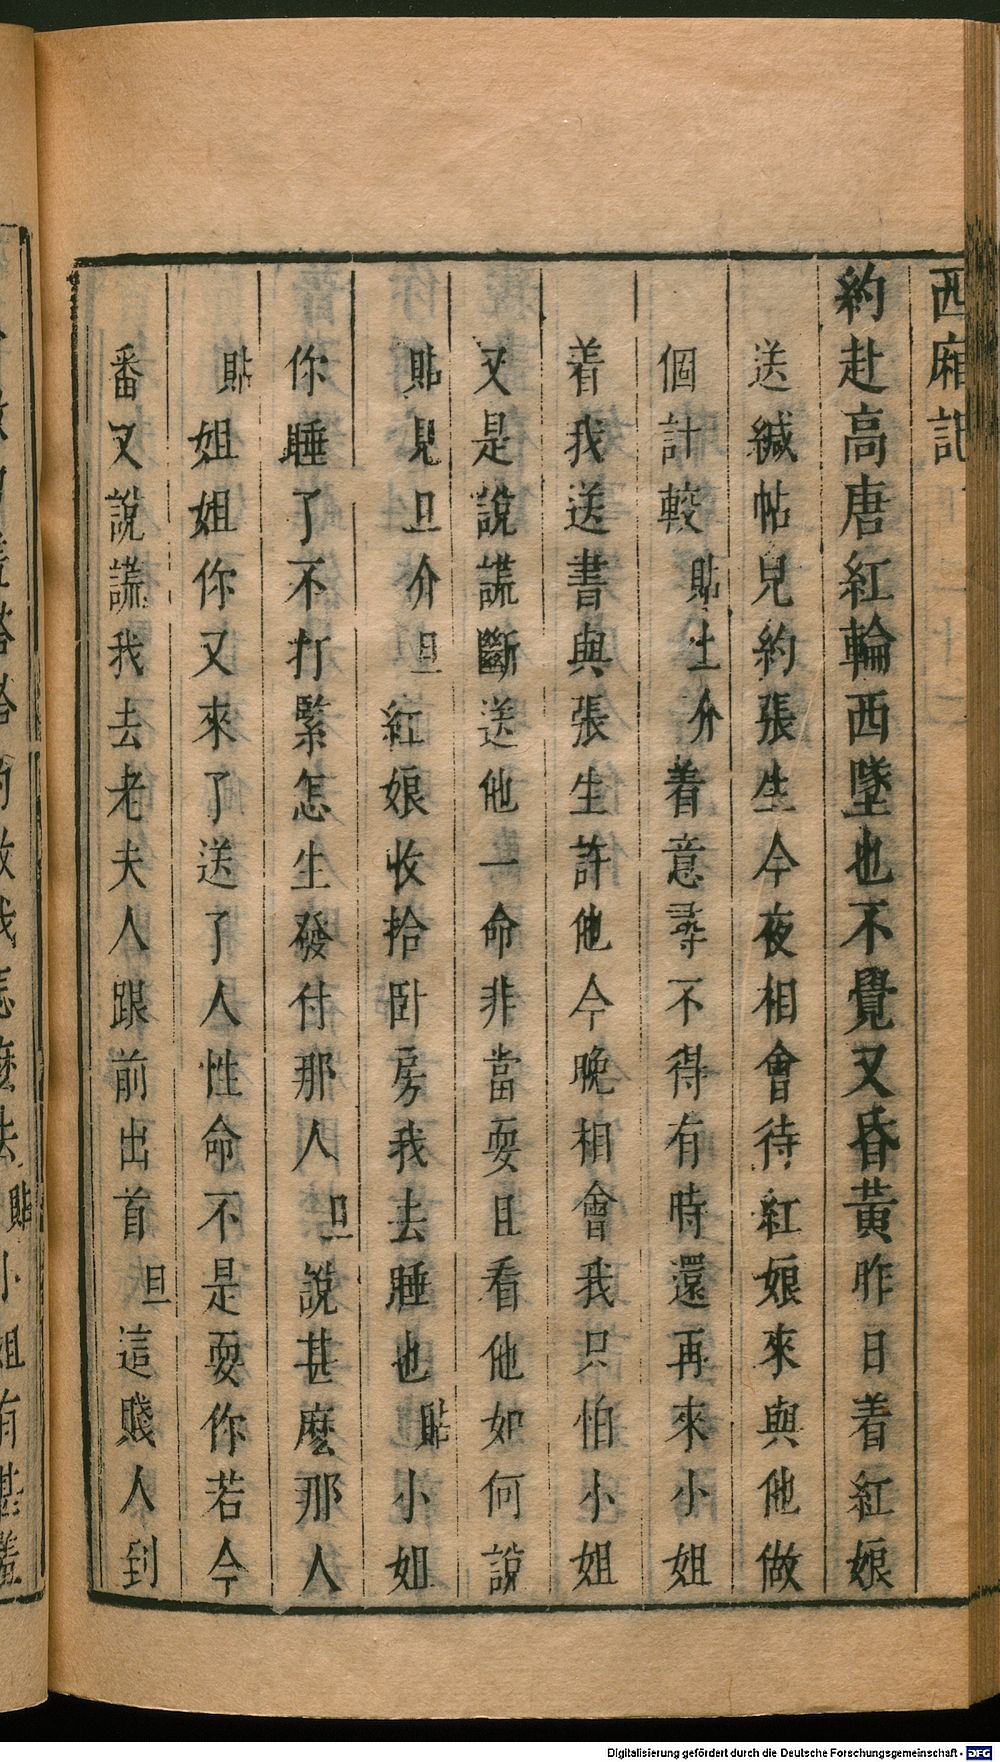 西廂記
約赴高唐紅輪西墜也不覺又昏黃昨日着紅娘
送緘帖兒約張生今夜相會待紅娘來與他做
個計較貼上介着意尋不得有時還再來小姐
着我送書與張生許他今晚相會我只怕小姐
又是說謊斷送他一命非當耍且看他如何說
貼見旦介旦紅娘收拾卧房我去睡也貼小姐
你睡了不打緊怎生發付那人旦說甚麽那人
貼姐姐你又來了送了人性命不是耍你若今
番又說謊我去老夫人跟前出首旦這賤人到
Digitalisierung gefördert durch die Deutsche Forschungsgemeinschaft - DFG